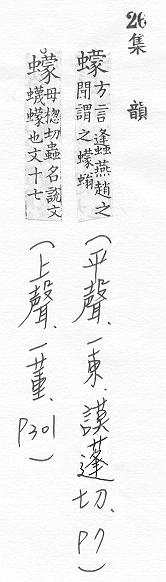 26
集韻
蠓方言䗬燕趙之間謂之蠓螉
(平聲、一東、謨蓬切、P7)
蠓母揔切蟲名說文蠛蠓也文十七
(上聲、一董、P301)